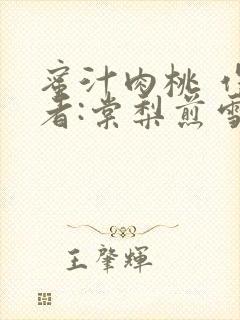 蜜汁肉桃 作
者:棠梨煎雪
王肇輝